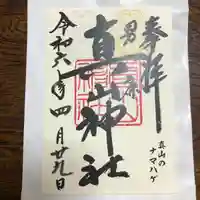 奉拝
男鹿
真山神社
令和六年四月廿九日
真山の
ナマハゲ